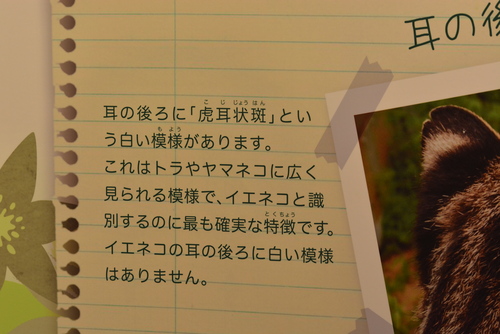 耳の後
耳の後ろに「虎耳状斑」とい
う白い模様があります。
これはトラやヤマネコに広く
見られる模様で、イエネコと識
別するのに最も確実な特徴です。
イエネコの耳の後ろに白い模様
はありません。